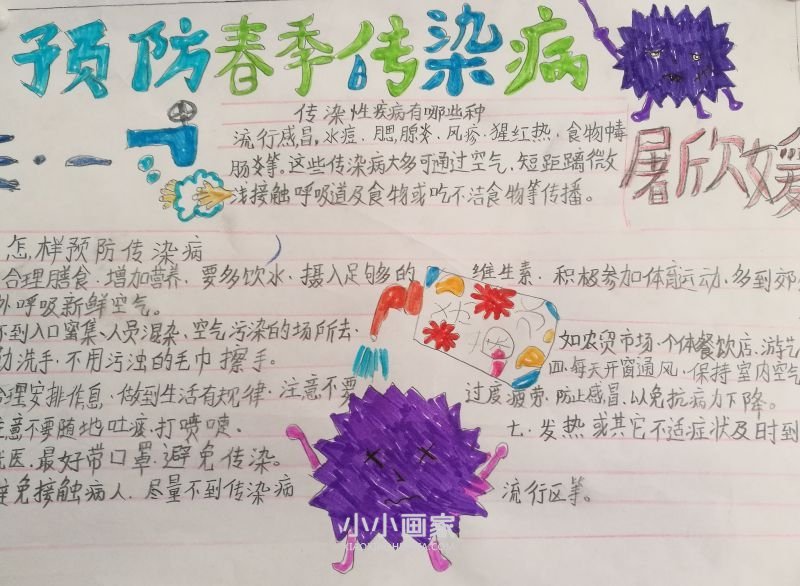 预防春季传染病
传染性疾病有哪些种
流行感冒，水痘．腮腺炎．风疹．猩红热．食物中毒
肠炎等。这些传染病大多可通过空气．短距离微
浅接触呼吸道及食物或吃不洁食物等传播。
屠欣媛
怎样预防传染病
合理膳食．增加营养．要多饮水．摄入足够的 维生素．积极参加体育运动．多到郊
外呼吸新鲜空气。
不到人口蜜集、人员混杂．空气污染的场所去． 如农贸市场．个体餐饮店．游艺
勤洗手．不用污浊的毛巾擦手。 四．每天开窗通风，保持室内空气
合理安排作息．做到生活有规律．注意不要 过度疲劳．防止感冒．以免抗病力下降。
注意不要随地吐痰．打喷嚏． 七．发热或其它不适症状及时到
就医．最好带口罩避免传染。
避免接触病人．尽量不到传染病 流行区等。
小小画家